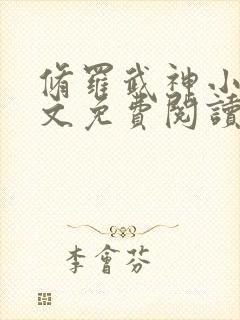 脩羅武神小
文免費閱讀
李會芬